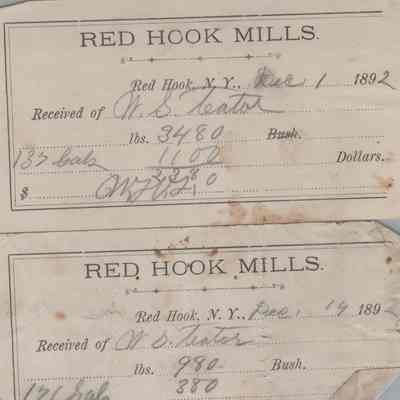 RED HOOK MILLS.
Red Hook, N. Y., Dec 1 1892
Received of W. S. Teator
lbs. 3480 Bush.
137 Bab 1100 Dollars.
$ 2380
RED HOOK MILLS.
Red Hook, N. Y., Dec. 14 1892
Received of W S. Teator
lbs. 980 Bush.
380